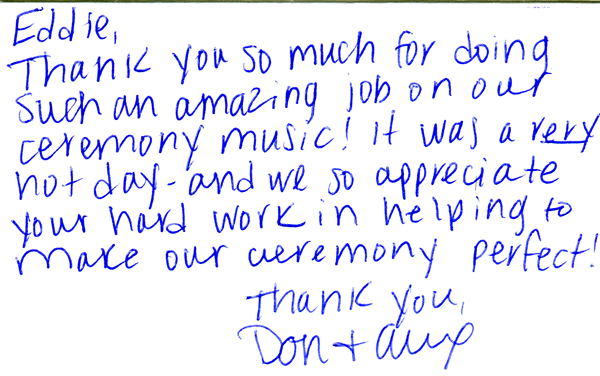 Eddie,
Thank you so much for doing
such an amazing job on our
ceremony music! It was a very
hot day - and we so appreciate
your hard work in helping to
make our ceremony perfect!
Thank you,
Don + Alix